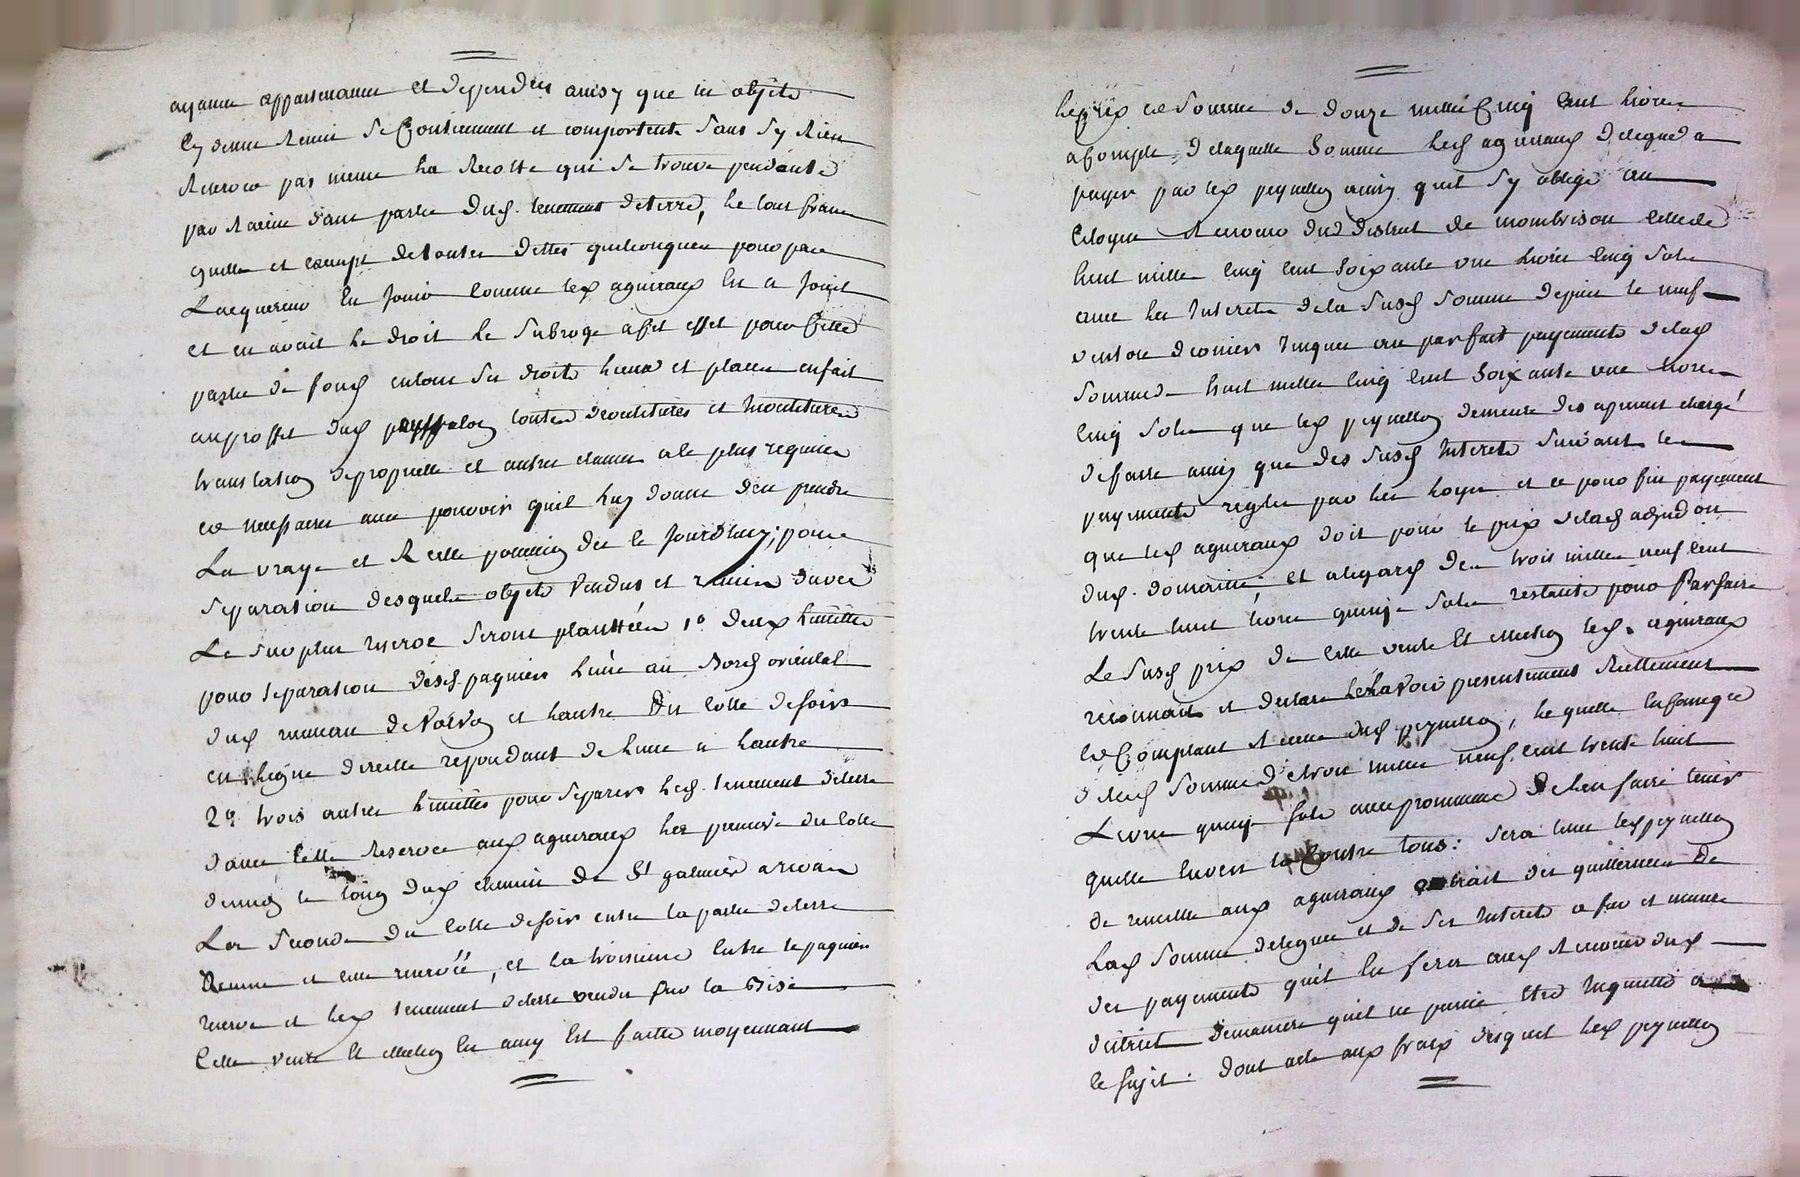 ayance appartenance et dependces ainsy que les objets
cy dennt vennus se Contiennent et comportent sans sy Rien
Reserver pas meme La Recolte qui se trouve pendante
par Racine dans partie dud. tenement deterre, Le tout franc
quitte et exempt detoutes dettes quelconques pour par
Lacquereur en Jouir comme led aguiraux en a Jouit
et en avait le droit Le subroge a cet effet pour Cette
partie de fond en tous ses droits Lieux et places en fait
au proffit dud toutes devetitures et Invetitures
translation depropriette et autres clauses ale plus requises
et necessaires avec pouvoir quil Luy donne den prendre
La vraye et Reelle possession des le Jourdhuy, pour
separation desquels objets Vendus et davec
Le surplus reservé seront planttées 1° deux limittes
pour separation desd. paquiers Lune au Bord oriental
dud ruisseau de et Lautre Du cotté desoir
en Ligne directe repondant de Lune a Lautre
2° trois autres limittes pour separer Led. tenement deterre
davec celle Reservée aux aguiraux La premiere du cotté
demidy le long dud chemin de St galmier a
La seconde du cotté desoir entre la partie deterre
Vennue et celle reservée, et la troisieme Entre le paquier
reservé et Led tenement deterre vendu sur la Bise
Cette vente Et Mution en ainsy Est faitte moyennant
Le prix et somme de douze mille Cinq Cent Livres
a Compte delaquelle somme Led aguiraux delegue a
payer par led peyrellon ainsy quil sy oblige au
Citoyen Receveur dud district de montbrison Celle de
huit mille cinq cent soixante une Livres cinq sols
avec Les Interets dela susd somme depuis le neuf
ventose dernier Jusques au parfait payement delad
somme de huit mille cinq cent soixante une Livres
cinq sols que led peyrellon demeure des apresent chargé
defaire ainsy que des susd Interets suivant les
payements reglés par les Loyx et ce pour fin payement
que led aguiraux doit pour le prix delad adjudon
dud. domaine, et alegard des trois milles neuf cent
trente huit Livres quinze sols restante pour Parfaire
Le susd prix de cette vente Et Mution led. aguiraux
reconnait et declare Lesavoir presentement Reellement
et Comptant Receu dud peyrellon, Lequelle
delad somme de trois mille neuf cent trente huit
Livres quinze sols avec promesse de Len faire tenir
quitte Envers et Contre tous: sera tenu led peyrellon
de remettre aux aguiraux extrait des quittances de
Lad somme deleguée et de ses Interets a fur et mesure
des payements quil en fera aud Receveur dud
district demaniere quil ne puisse Etre Inquietté a
ce sujet. dont acte aux fraix desquels Led peyrellon